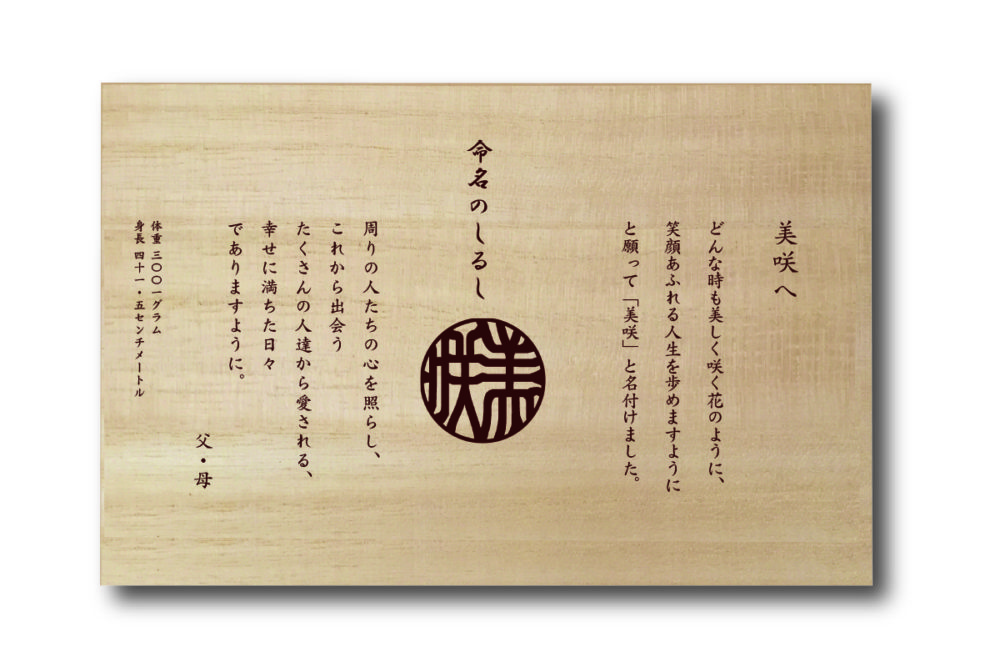 美咲へ
どんな時も美しく咲く花のように、
笑顔あふれる人生を歩めますように
と願って「美咲」と名付けました。
命名のしるし
美咲
周りの人たちの心を照らし、
これから出会う
たくさんの人達から愛される、
幸せに満ちた日々
でありますように。
父・母
体重 三〇〇一グラム
身長 四十一・五センチメートル